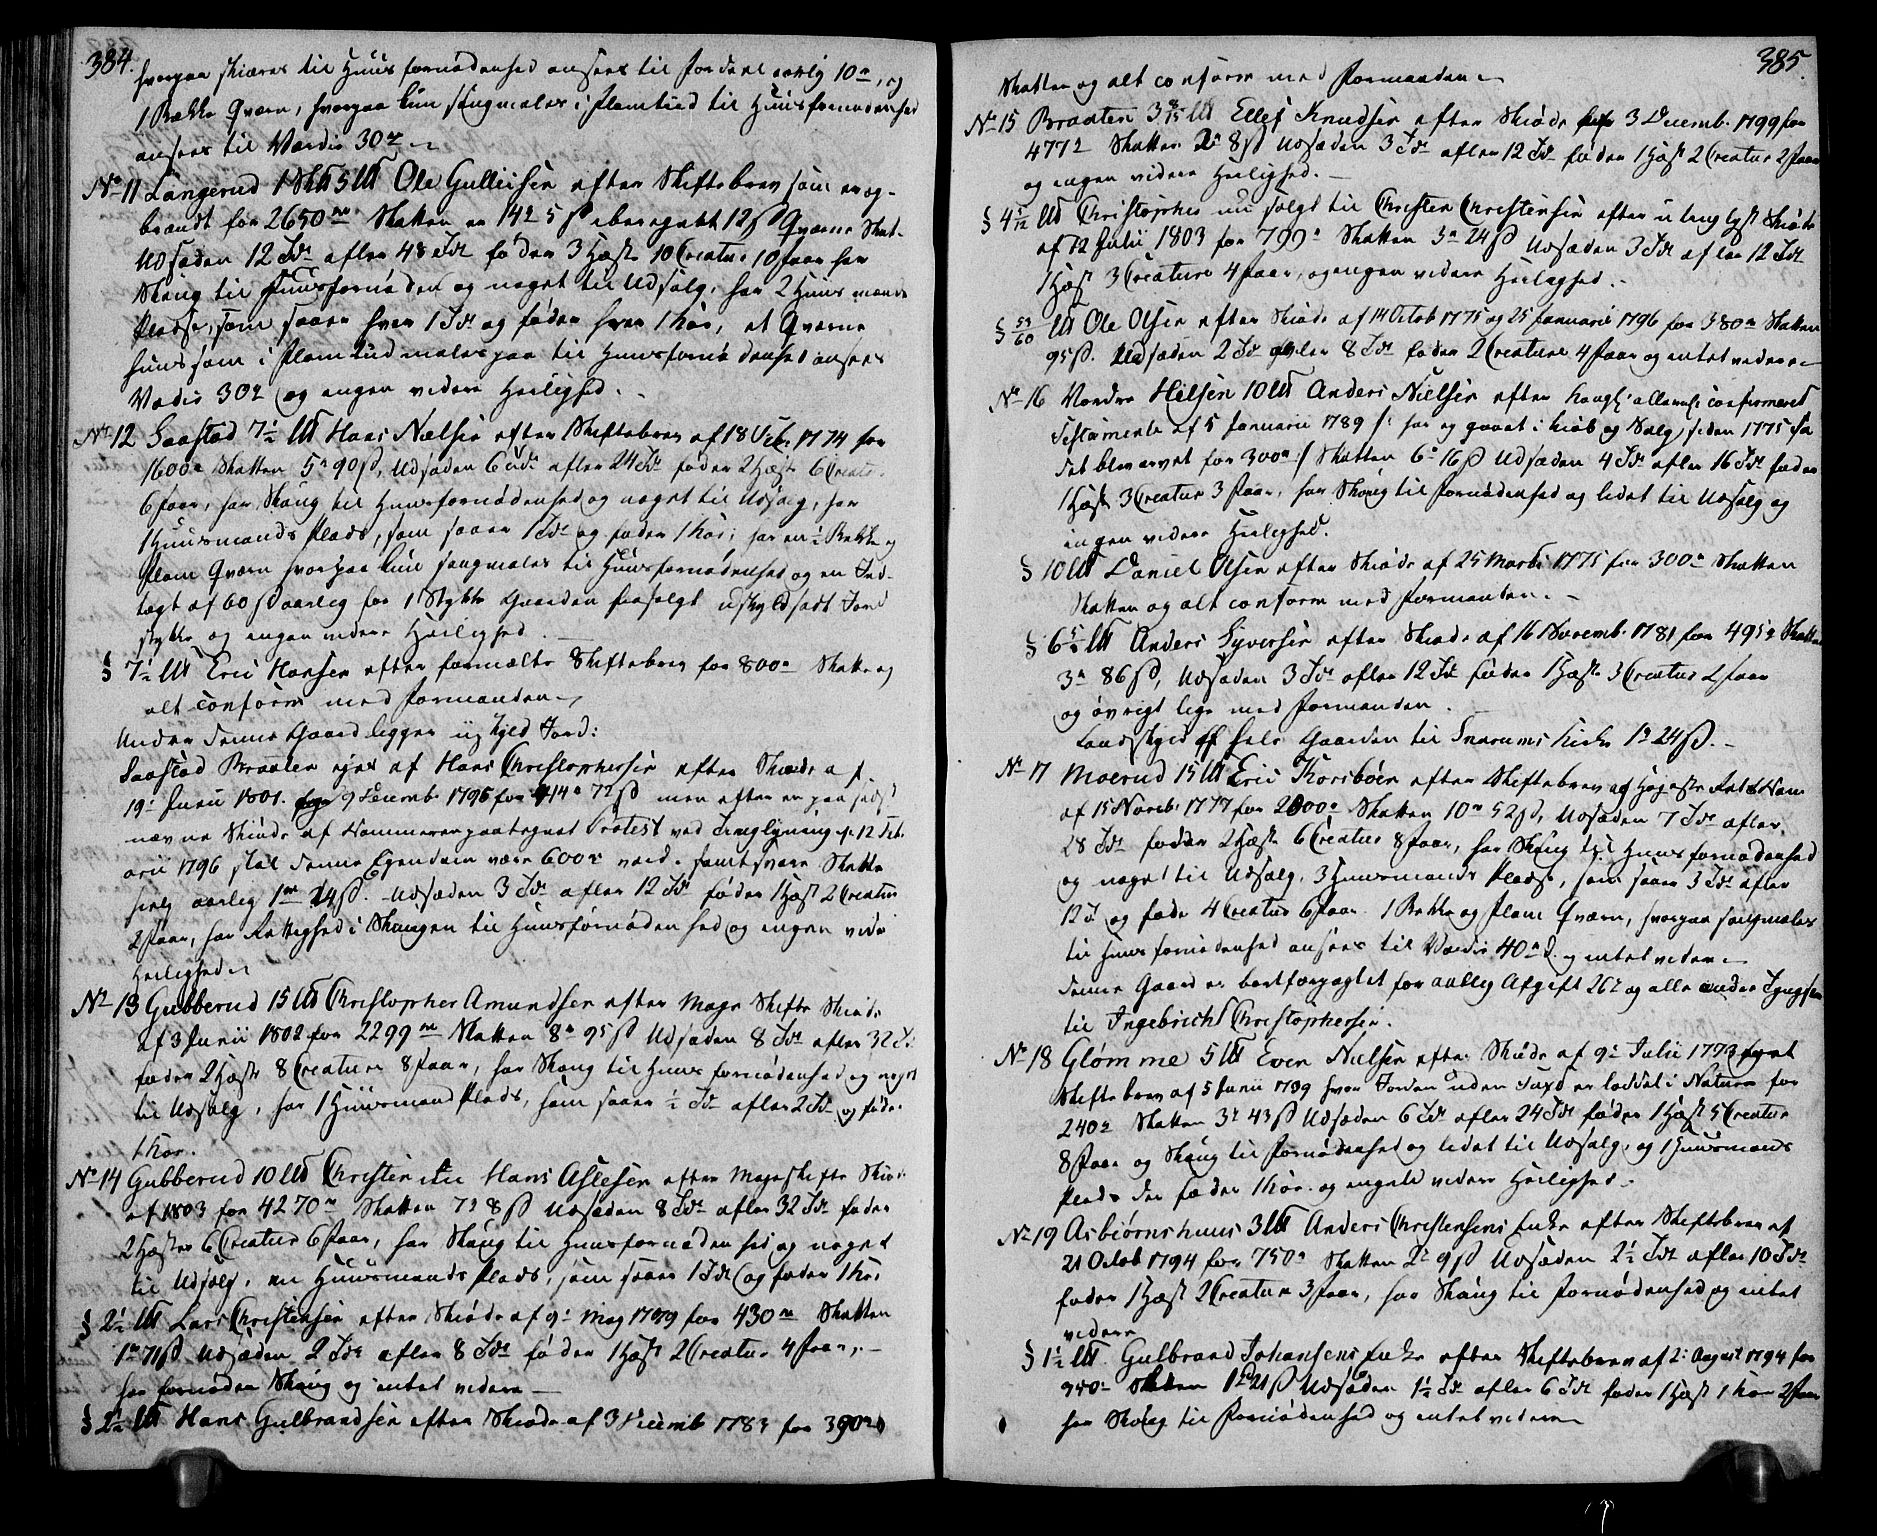 384.
hvorpaa skiæres til Huus fornødenhed ansees til Fordeel aarlig 10 rd, og
1 Bække Qværn, hvorpaa kun sligmales i Flomtiid til Huusfornødenhed
ansees til Værdie 30 rd
No 11 Langerud 1 Skt 5 Lb Ole Gullicsen efter Skiftebrev som er op-
brændt for 2650 rd Skatten er 14 rd 5 s iberegnet 12 s Qværne Skat.
Udsæden 12 Tdr afler 48 Tdr føder 3 Hæste 10 Creatur 10 Faar har
Skoug til Huusfornøden og noget til Udsalg, har 2 Huusmænds
Pladse, som saaer hver 1 Td og føder hver 1 Koe, et Qværne
huus som i Flomtiid males paa til Huusfornødenhed ansees
Værdie 30 rd og ingen videre Herlighed.
No 12 Saastad 7 1/2 Lb Hans Nielsen efter Skiftebrev af 18 Febr 1774 for
1600 rd Skatten 5 rd 90 s, Udsæden 6 Tdr afler 24 Tdr føder 2 Hæste 6 Creatur
6 Faar, har Skoug til Huusfornødenhed og noget til Udsalg, har
1 Huusmands Plads, som saaer 1 Td og føder 1 Koe; har en 1/2 Bække og
Flom Qværn hvorpaa kun sligmales til Huusfornødenhed og en Ind-
tægt af 60 s aarlig for 1 Stykke Gaarden frasolgt uskyldsadt Jord
stykke og ingen videre Herlighed.
§ 7 1/2 Lb Eric Hansen efter formælte Skiftebrev for 800 rd Skatte og
alt conform med Formanden
Under denne Gaard ligger uskyld Jord:
Saastad Braaten ejes af Hans Christophersen efter Skiøde af
19 Junii 1801. 9 Decemb. 1795 for 414 rd 72 s men efter en paa sidst
nævne Skiøde af Kammeret paategnet Protest ved Tinglysning af 12 Feb
arii 1796 skal denne Egendom være 600 rd værd. samt svare Skatte
hielp aarlig 1 rd 24 s. Udsæden 3 Tdr afler 12 Tdr føder 1 Hæst 2 Creatur
2 Faar, har Rettighed i Skougen til Huusfornødenhed og ingen videre
Herlighed
No 13 Gubberud 15 Lb Christopher Amundsen efter Mage Skifte Skiøde
af 3 Junii 1802 for 2299 rd Skatten 8 rd 95 s Udsæden 8 Tdr afler 32 Td
føder 2 Hæste 8 Creature 8 Faar, har Skoug til Huusfornødenhed og noget
til Udsalg, har 1 Huusmand Plads, som saaer 1/2 Td afler 2 Td og føder
1 Koe.
No 14 Gubberud 10 Lb Christen Hans Aslesen efter Mageskifte Skiøde
af 1803 for 4270 rd Skatten 7 rd 8 s Udsæden 8 Tdr afler 32 Tdr føder
2 Hæster 6 Creatur 6 Faar, har Skoug til Huusfornødenhed og noget
til Udsalg, en Huusmands Plads, som saaer 1 Td og føder 1 Koe
§ 2 1/2 Lb Lars Christensen efter Skiøde af 9 May 1799 for 430 rd Skatten
1 rd 71 s Udsæden 2 Tdr afler 8 Tdr føder 1 Hæst 2 Creatur 4 Faar,
har fornøden Skoug og intet videre
§ 2 1/2 Lb Hans Gulbrandsen efter Skiøde af 3 Decemb 1783 for 390 rd
385.
Skatten og alt conform med Formanden
No 15 Braaten 3 8/15 Lb Ellef Knudsen efter Skiøde 3 Decemb. 1799 for
477 rd Skatten 2 rd 8 s Udsæden 3 Tdr afler 12 Tdr føder 1 Hæst 2 Creatur 2 Faar
og ingen videre Herlighed.
§ 4 1/12 Lb Christopher nu solgt til Christen Christensen efter u tinglyst Skiøde
af 12 Julii 1803 for 799 rd Skatten 3 rd 24 s Udsæden 3 Tdr afler 12 Tdr
1 Hæst 3 Creature 4 Faar, og ingen videre Herlighed.
§ 53/60 Lb Ole Olsen efter Skiøde af 14 Octob 1775 og 25 Januarii 1796 for 380 rd Skatten
95 s. Udsæden 2 Td afler 8 Tdr føder 2 Creature 4 Faar og intet videre
No 16 Vordre Hilsen 10 Lb Anders Nielsen efter confirmeret
Testamente af 5 Januarii 1789 /: har ey gaaet i kiøb og Salg, siden 1775 da
det blev arvet for 300 rd :/ Skatten 6 rd 16 s Udsæden 4 Tdr afler 16 Tdr føder
1 Hæst 3 Creatur 3 Faar, har Skoug til Fornødenhed og lidet til Udsalg og
ingen videre Herlighed.
§ 10 Lb Daniel Olsen efter Skiøde af 25 Marts 1775 for 300 rd Skatten
Skatten og alt conform med Formanden.
§ 6 5/6 Lb Anders Syversen efter Skiøde af 16 Novemb. 1781 for 495 rd Skatten
3 rd 86 s, Udsæden 3 Tdr afler 12 Tdr føder 1 Hæst 3 Creatur 2 Faar
og øvrigt lige med Formanden.
Landskyld af hele Gaarden til Snarums Kirke 1 rd 24 s.
No 17 Moerud 15 Lb Eric Korsboen efter Skiftebrev og Høyeste Rets Dom
af 15 Novb. 1777 for 2000 rd Skatten 10 rd 52 s, Udsæden 7 Tdr afler
28 Tdr føder 2 Hæste 6 Creatur 8 Faar, har Skoug til Huusfornødenhed
og noget til Udsalg. 3 Huusmands Pladse, som saaer 3 Tdr afler
12 T. og føder 4 Creatur 6 Faar. 1 Bække og Flom Qværn, hvorpaa sligmales
til Huusfornødenhed ansees til Værdie 40 rd. og intet videre
denne Gaard er bortforpagtet for aarlig Afgift 26 rd og alle andre Tyngsler
til Ingebricht Christophersen.
No 18 Glømme 5 Lb Even Nielsen efter Skiøde af 9 Julii 1773 samt
Skiftebrev af 5 Junii 1799 hvor Jorden uden Taxt er loddet i Natura for
240 rd Skatten 3 rd 43 s Udsæden 6 Tdr afler 24 Tdr føder 1 Hæst 5 Creatur
8 Faar og Skoug til Fornødenhed og lidet til Udsalg, og 1 Huusmands
Plads der føder 1 Koe. og ingen videre Herlighed.
No 19 Asbiørnshuus 3 Lb Anders Christensens Enke efter Skiftebrev af
21 Octob 1794 for 750 rd Skatten 2 rd 9 s Udsæden 2 1/2 Tdr afler 10 Tdr
føder 1 Hæst 2 Creatur 3 Faar, har Skoug til Fornødenhed og intet
videre
§ 1 1/2 Lb. Gulbrand Johansens Enke efter Skiftebrev af 2 August 1794 for
350 rd Skatten 1 rd 21 s Udsæden 1 1/2 Td afler 6 Tdr føder 1 Hæst 1 Koe 2 Faar
har Skoug til Fornødenhed og intet videre